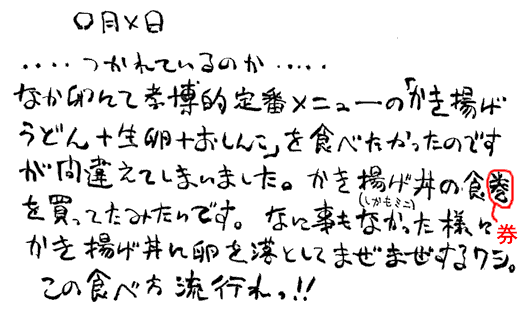 〇月×日
‥‥つかれているのか‥‥‥
なか卯にて孝博的定番メニューの「かき揚げ
うどん＋生卵＋おしんこ」を食べたかったのです
が間違えてしまいました。かき揚げ丼の食巻
(しかもミニ)
を買ってたみたいです。なに事もなかった様に
券
かき揚げ丼に卵を落としてまぜまぜするワシ。
この食べ方流行れっ!!